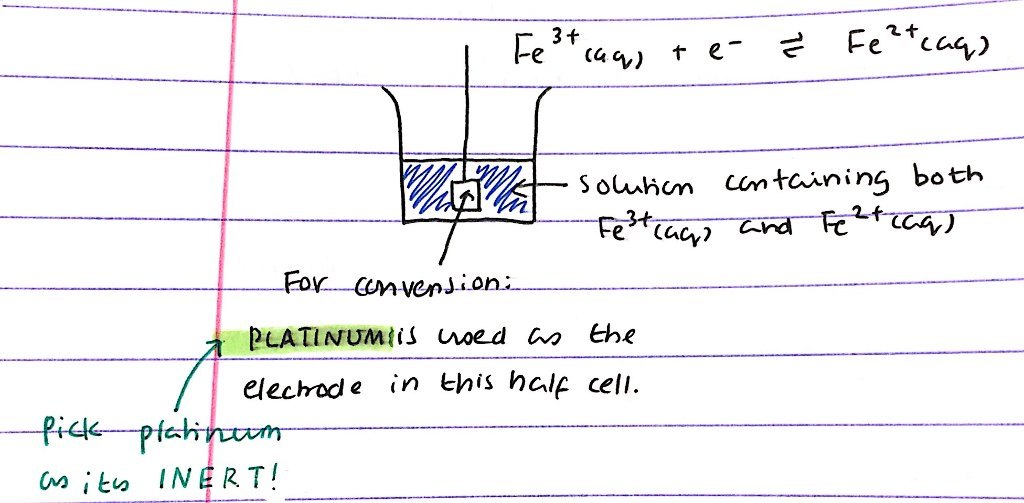 Fe³⁺(aq) + e⁻ ⇌ Fe²⁺(aq)
solution containing both
Fe³⁺(aq) and Fe²⁺(aq)
For convension:
PLATINUM is used as the
electrode in this half cell.
Pick platinum
as its INERT!